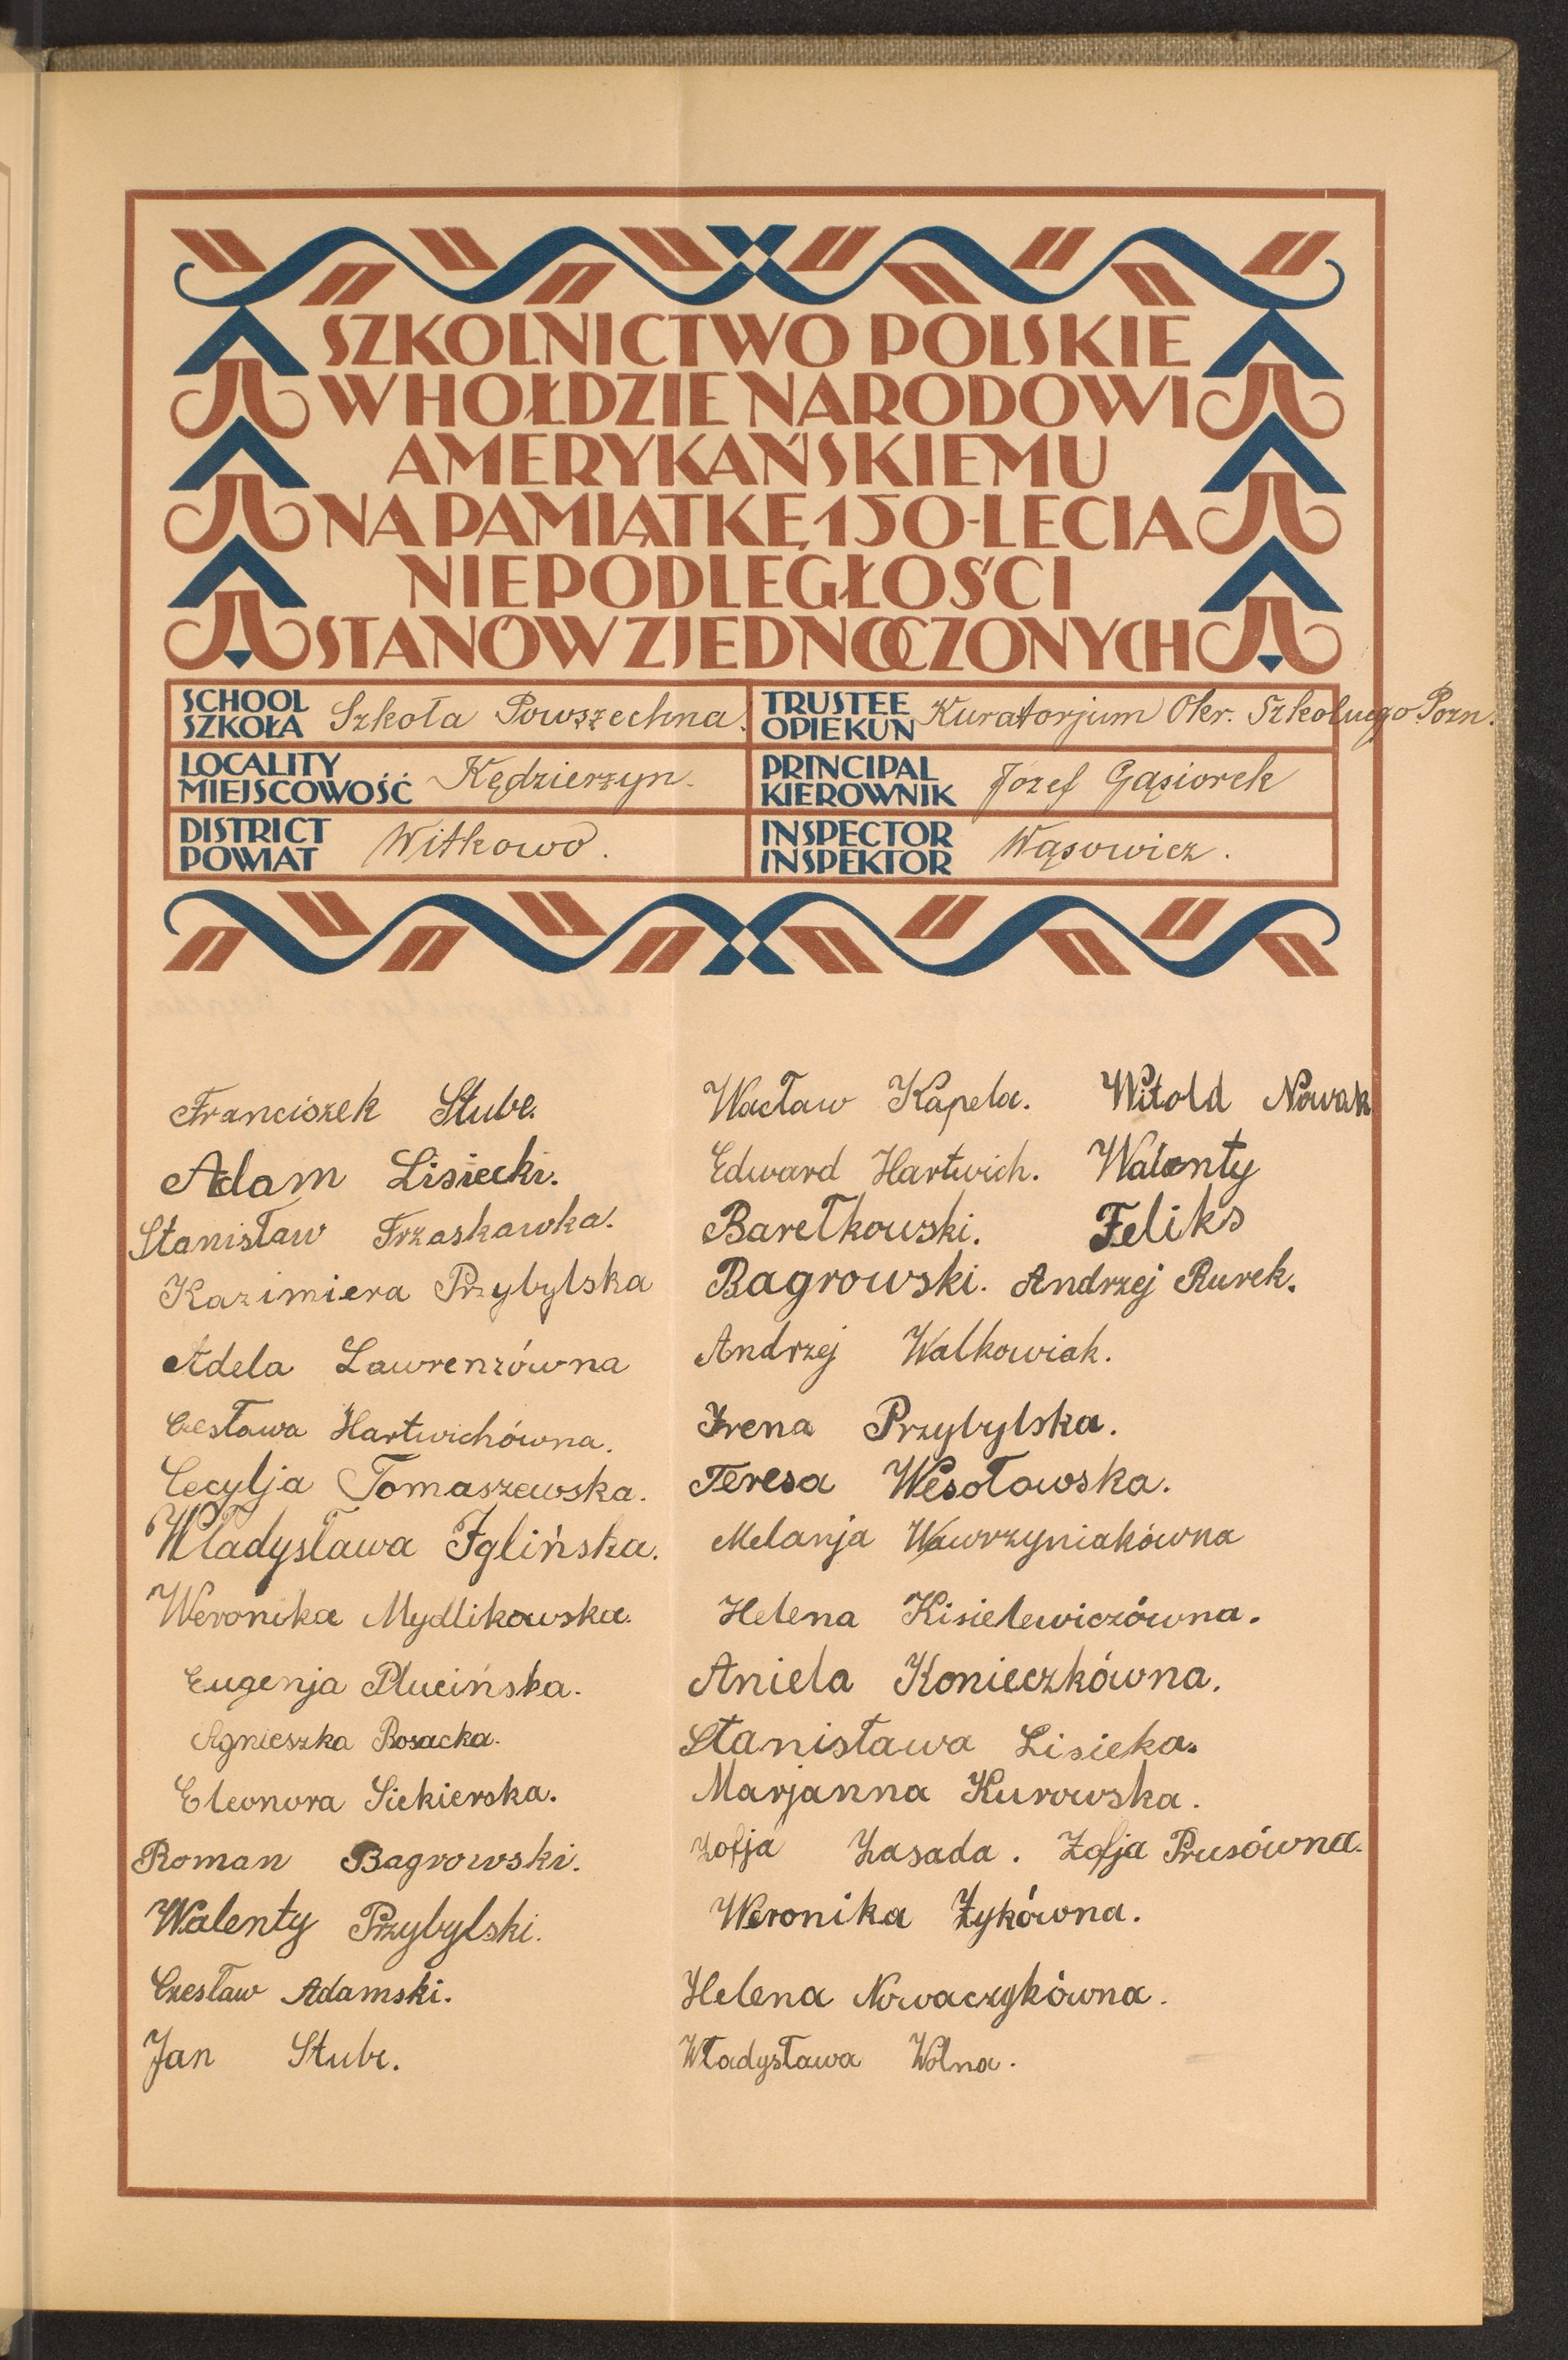 SZKOLNICTWO POLSKIE
W HOŁDZIE NARODOWI
AMERYKAŃSKIEMU
NA PAMIĄTKĘ 150-LECIA
NIEPODLEGŁOŚCI
STANÓW ZJEDNOCZONYCH
SCHOOL
SZKOŁA Szkoła Powszechna.
TRUSTEE
OPIEKUN Kuratorjum Okr. Szkolnego Pozn.
LOCALITY
MIEJSCOWOŚĆ Kędzierzyn.
PRINCIPAL
KIEROWNIK Józef Gąsiorek
DISTRICT
POWIAT Witkowo.
INSPECTOR
INSPEKTOR Wąsowicz.
Franciszek Stube.
Adam Lisiecki.
Stanisław Trzaskawka.
Kazimiera Przybylska
Adela Lawrenzówna
Czesława Hartwichówna.
Cecylja Tomaszewska.
Władysława Iglińska.
Weronika Mydlikowska.
Eugenja Plucińska.
Agnieszka Rosacka.
Eleonora Siekierska.
Roman Bagrowski.
Walenty Przybylski.
Czesław Adamski.
Jan Stube.
Wacław Kapela. Witold Nowak
Edward Hartwich. Walenty
Barełkowski. Feliks
Bagrowski. Andrzej Rurek.
Andrzej Walkowiak.
Irena Przybylska.
Teresa Wesołowska.
Melanja Wawrzyniakówna
Helena Kisielewiczówna.
Aniela Konieczkówna.
Stanisława Lisieka.
Marjanna Kurowska.
Zofja Zasada. Zofja Prusówna.
Weronika Żykówna.
Helena Nowaczykówna.
Władysława Wolna.